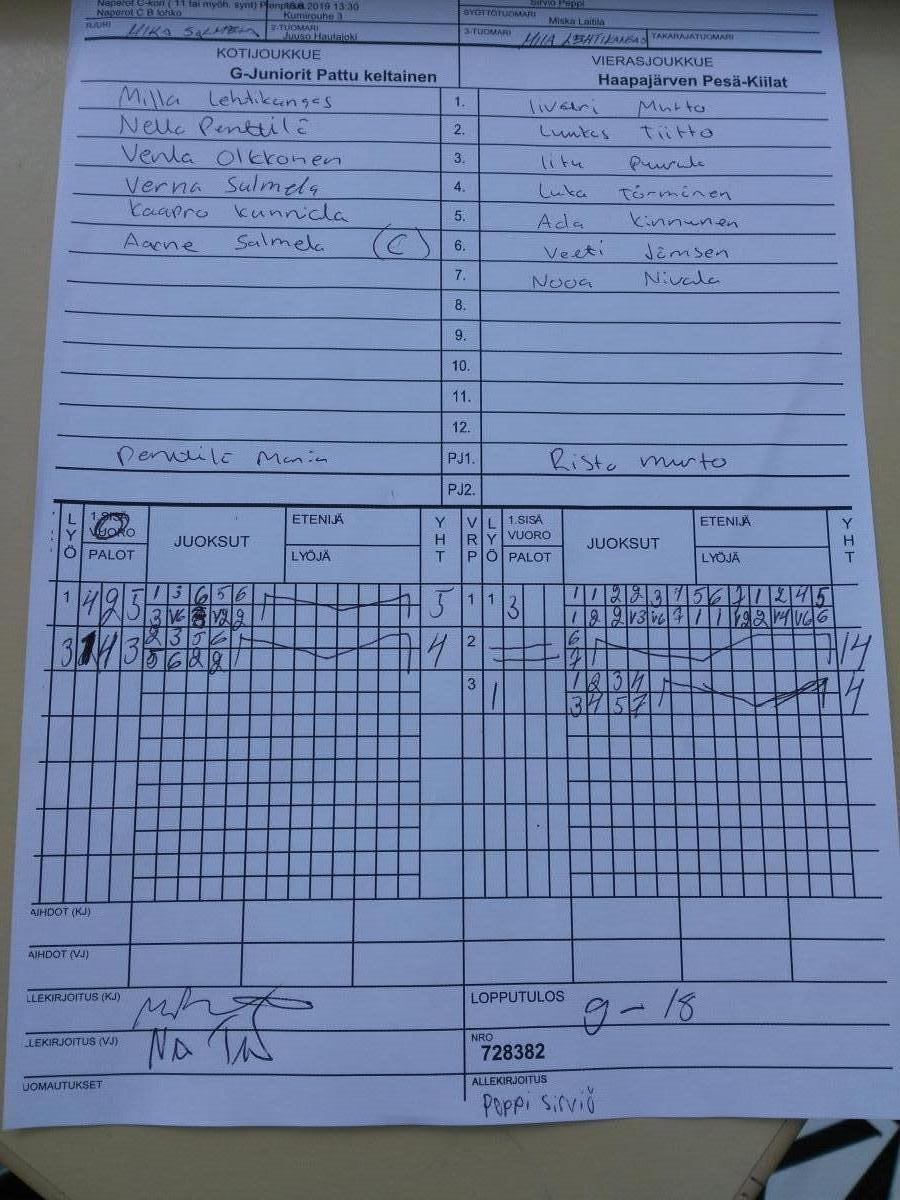 Naperot C-kori ( 11 tai myöh. synt)
Naperot C B lohko
2019 13:30
Kumirouhe 3
Sirviö Peppi
SYÖTTÖTUOMARI
Miska Laitila
2-TUOMARI
Juuso Hautajoki
3-TUOMARI
MILA LEHTIKANGAS
TAKARAJATUOMARI
KOTIJOUKKUE
G-Juniorit Pattu keltainen
VIERASJOUKKUE
Haapajärven Pesä-Kiilat
Milla Lehtikangas 1. Iivari Murto
Nella Penttilä 2. Luukas Tiitto
Venla Olkkonen 3. Iitu
Verna Salmela 4. Luka Törmänen
Kaapro 5. Ada Kinnunen
Aarne Salmela (C) 6. Veeti Jämsen
7. Nooa Nivala
8.
9.
10.
11.
12.
Penttilä Maria PJ1. Risto Murto
PJ2.
LYÖ 1.SISÄ VUORO PALOT JUOKSUT ETENIJÄ LYÖJÄ YHT VRP LYÖ 1.SISÄ VUORO PALOT JUOKSUT ETENIJÄ LYÖJÄ YHT
1 4 2 5 1 3 6 5 6 5 1 1 3 1 1 2 2 3 7 5 6 7 1 2 4 5
3 V6 V2 2 1 2 2 V3 V6 7 1 1 V2 2 V4 V6 6
3 1 4 3 2 3 5 6 4 2 6 14
5 6 2 2 7
3 1 1 2 3 4 4
3 4 5 7
AIHDOT (KJ)
AIHDOT (VJ)
LLEKIRJOITUS (KJ)
LOPPUTULOS 9 - 18
LLEKIRJOITUS (VJ)
NRO
728382
UOMAUTUKSET
ALLEKIRJOITUS
Peppi Sirviö